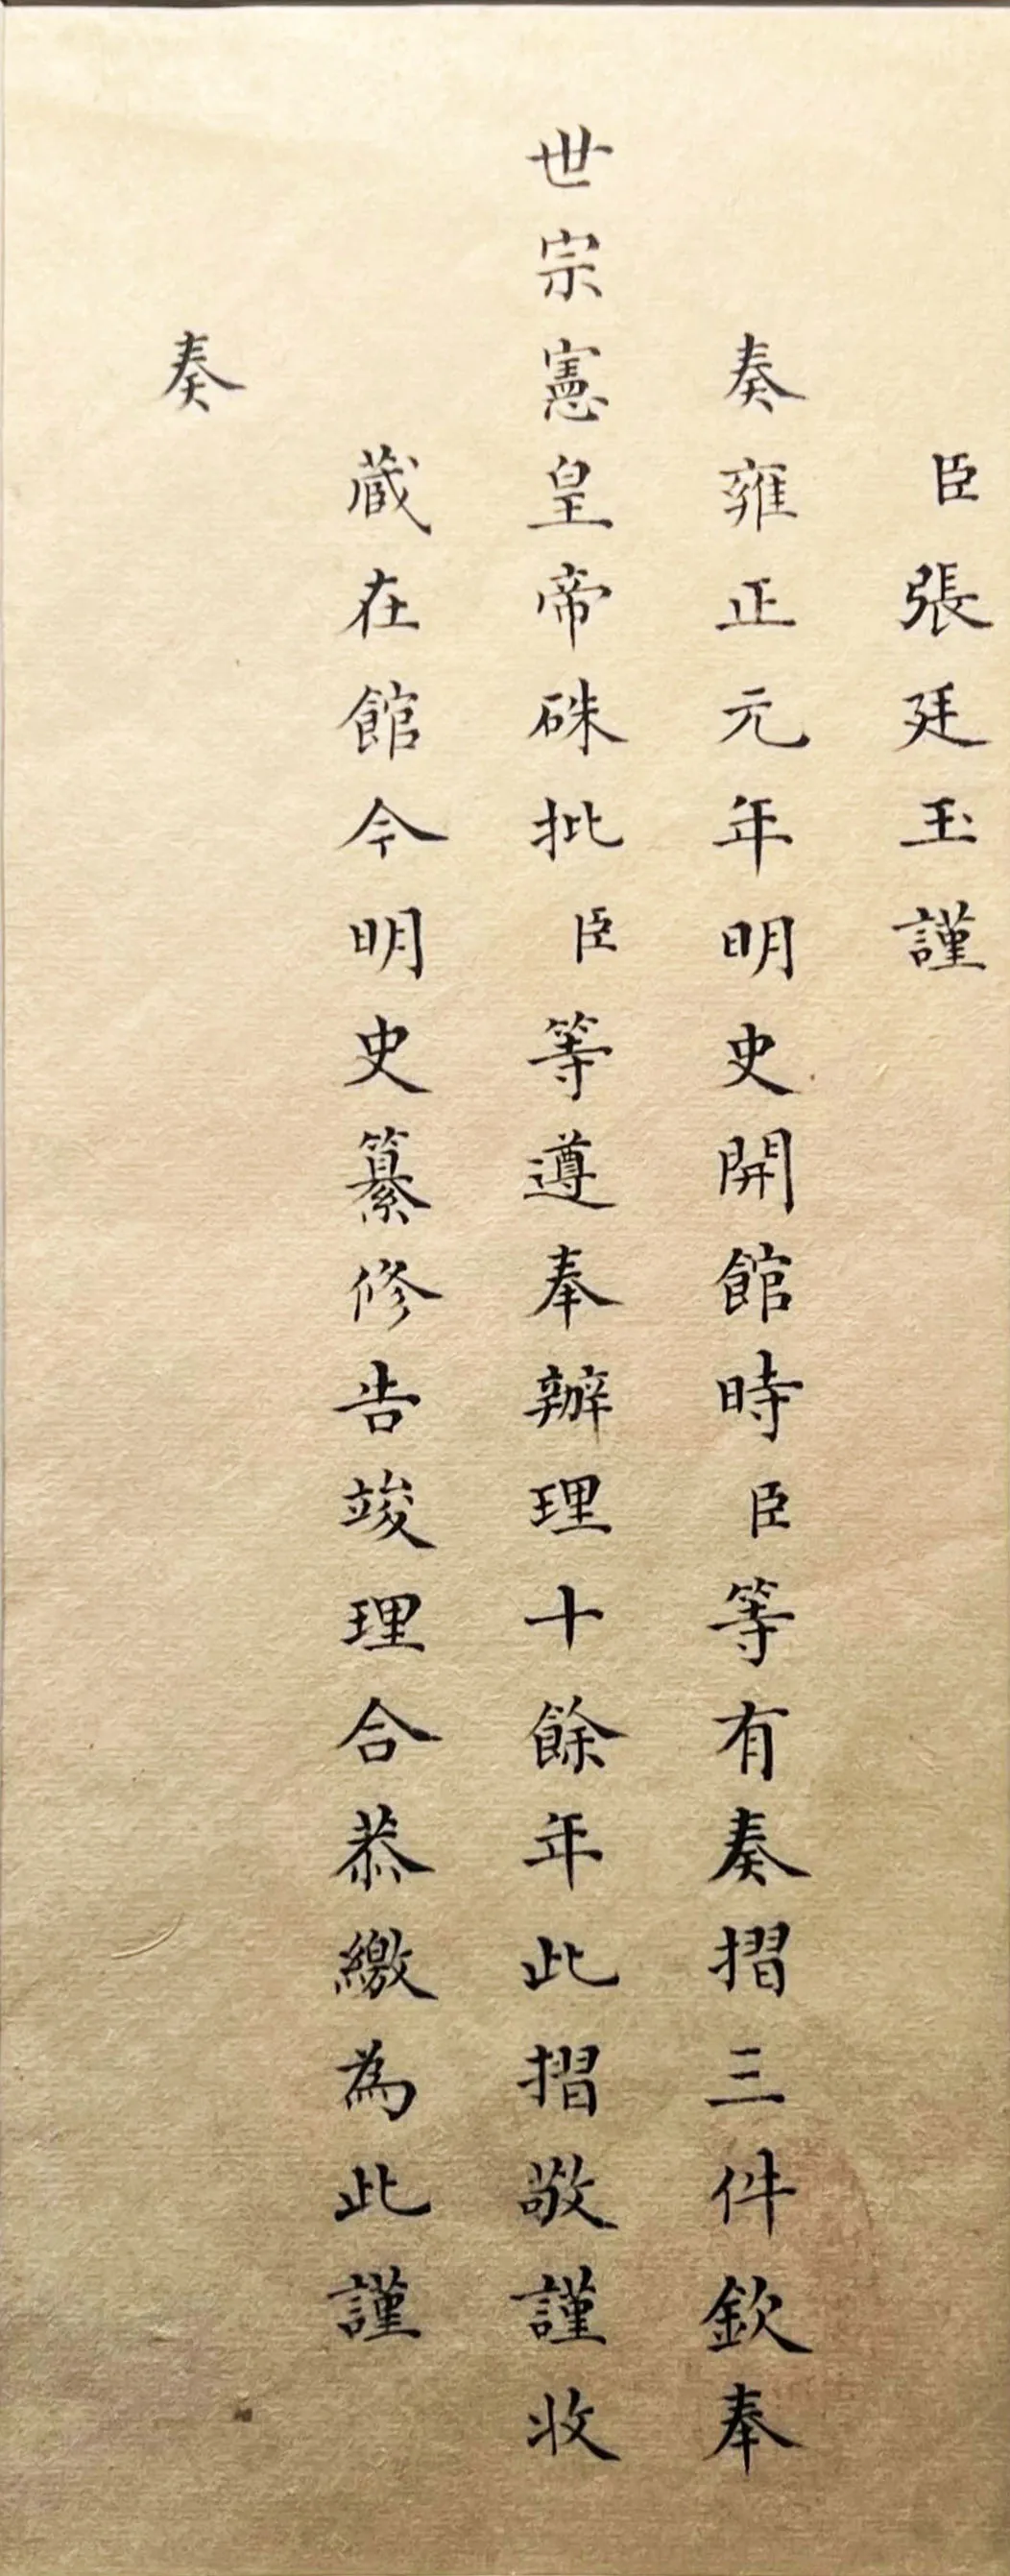 臣張廷玉謹
奏雍正元年明史開館時臣等有奏摺三件欽奉
世宗憲皇帝硃批臣等遵奉辦理十餘年此摺敬謹收
蔵在館今明史纂修告竣理合恭繳為此謹
奏